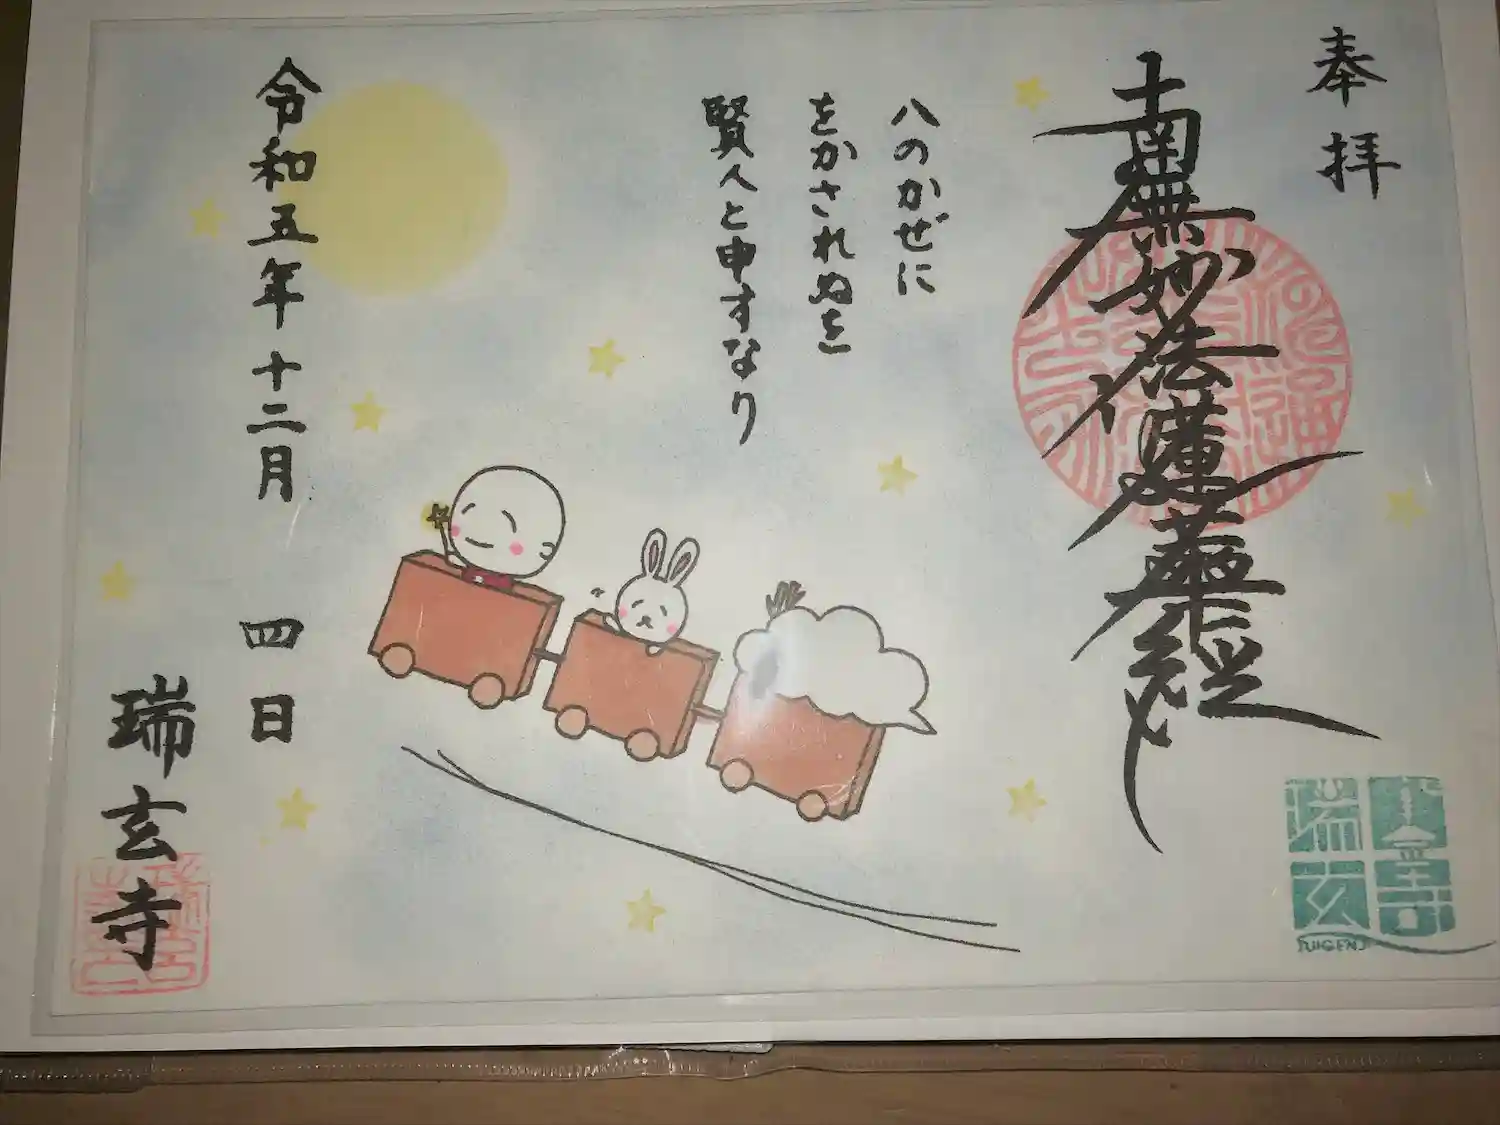 奉拝
南無妙法蓮華経
八のかぜに
をかされぬを
賢人と申すなり
令和五年十二月 四日
瑞玄寺
瑞玄